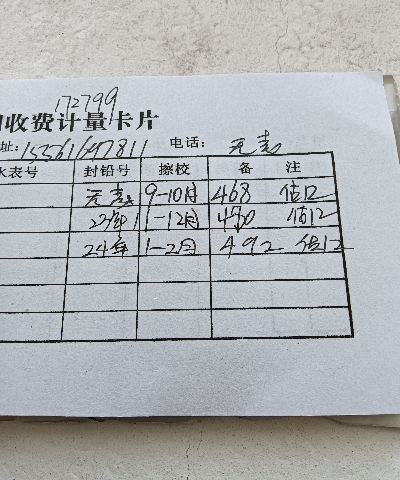 172799
收费计量卡片
址: 15561647811 电话: 无表
水表号 封铅号 擦校 备 注
无表 9-10月 468 估12
23年 11-12月 480 估12
24年 1-2月 492 估12